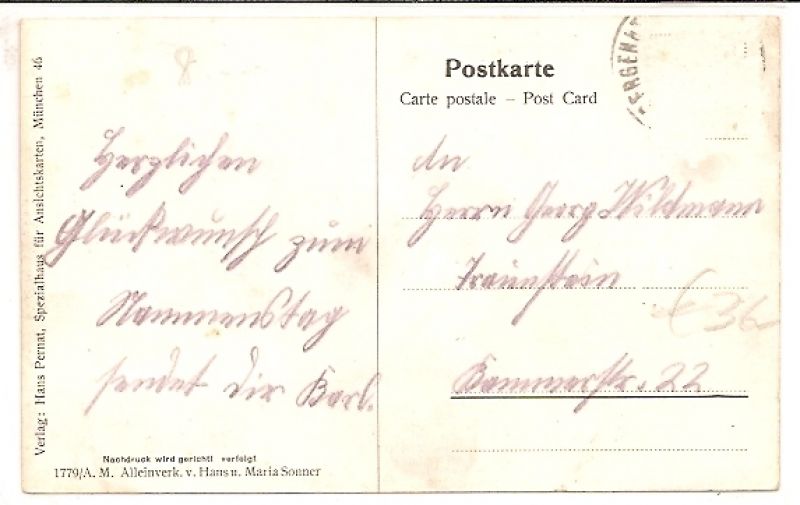 Verlag: Hans Pernat, Spezialhaus für Ansichtskarten, München 46
Herzlichen
Glückwunsch zum
Nammenstag
sendet dir Karl.
Nachdruck wird gerichtl verfolgt
1779/A. M. Alleinverk. v. Hans u. Maria Sonner
Postkarte
Carte postale – Post Card
An
Herrn Georg Wildmann
Traunstein
Kammerstr. 22
£ 36